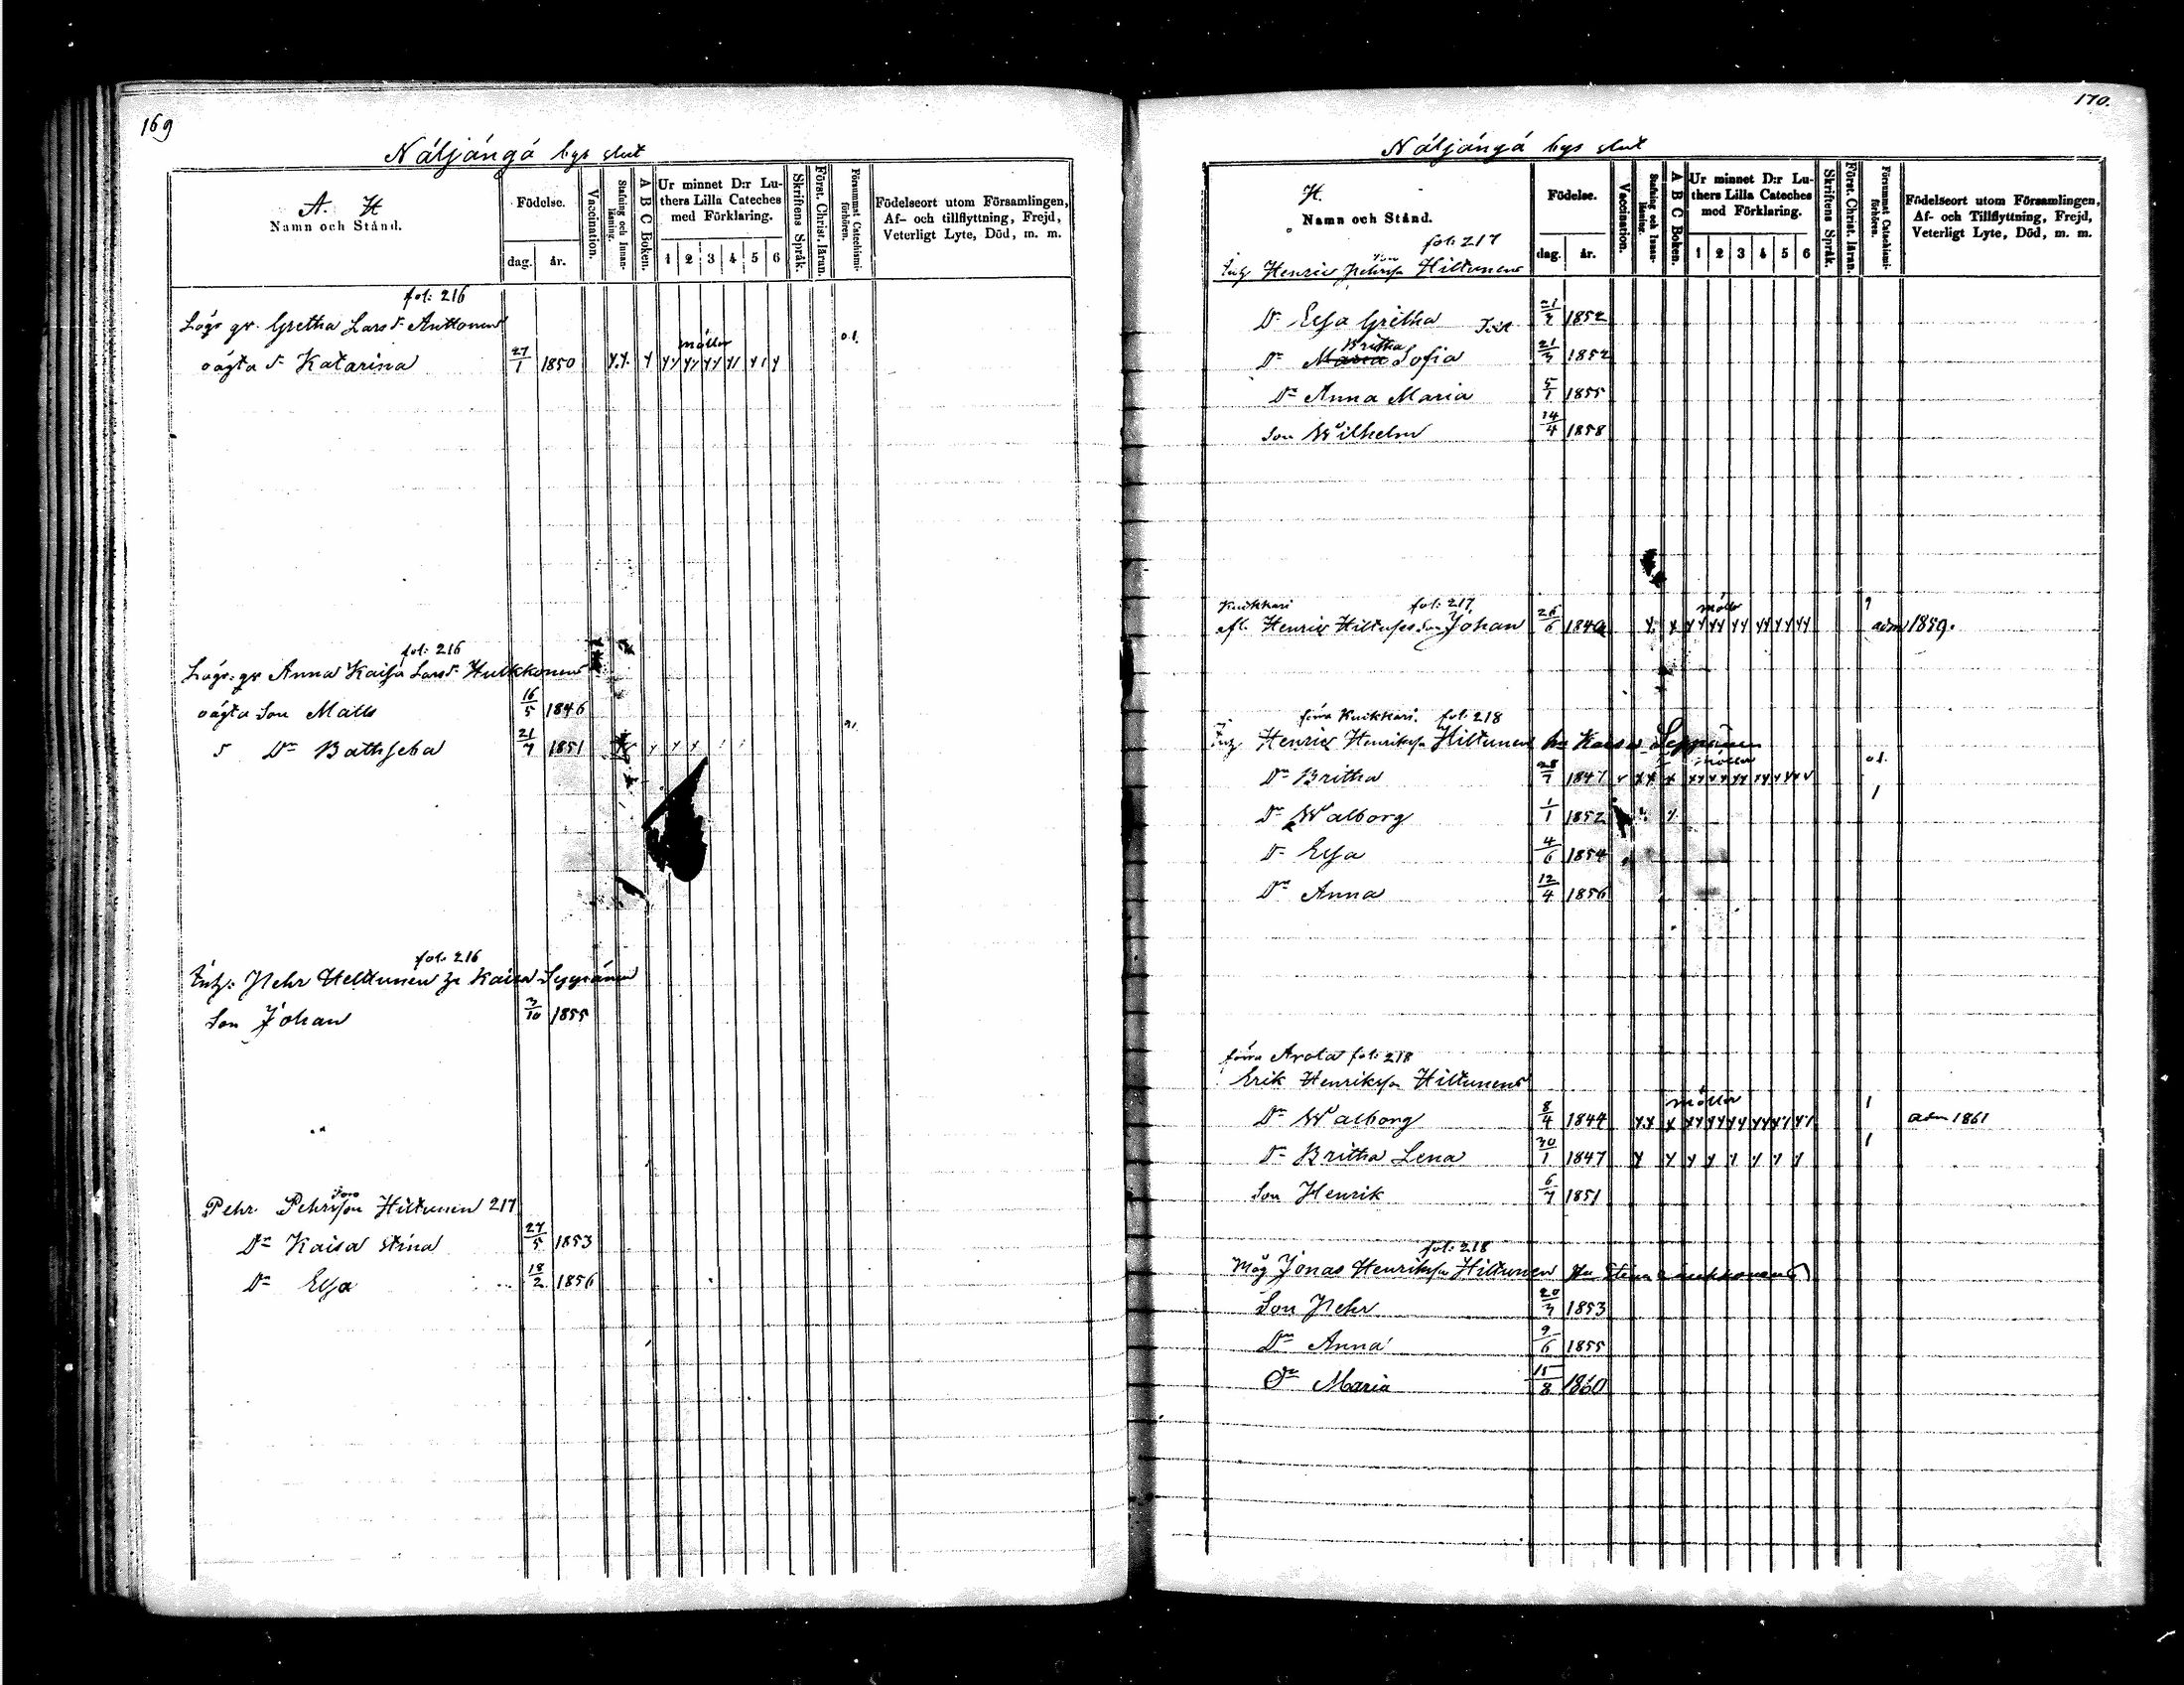 169
Näljängä bys slut
A. H
Namn och Stånd.
Födelse.
dag. år.
Vaccination.
Stafning och Innanläsning.
A B C Boken.
Ur minnet D:r Luthers Lilla Cateches med Förklaring.
1 2 3 4 5 6
Skriftens Språk.
Först. Christ. läran.
Försummat Catechismiförhören.
Födelseort utom Församlingen,
Af- och tillflyttning, Frejd,
Veterligt Lyte, Död, m. m.
fol: 216
Lögs gr. Gretha Lars dr Anttonens
oägta dr Katarina 27/1 1850 möller
fol: 216
Lögs: gr Anna Kaisa Lars dr Hulkkonens
oägta Son Matts 16/5 1846
Dr Bathseba 21/7 1851
fol: 216
Inh: Pehr Heltunen Kaisa Seppänen
Son Johan 3/10 1855
Pehr Pehrsson Hiltunen 217
Dr Kaisa Stina 27/5 1853
Dr Elsa 18/2 1856
170.
Näljängä bys slut
H.
Namn och Stånd.
Födelse.
dag. år.
Vaccination.
Stafning och Innanläsning.
A B C Boken.
Ur minnet D:r Luthers Lilla Cateches med Förklaring.
1 2 3 4 5 6
Skriftens Språk.
Först. Christ. läran.
Försummat Catechismiförhören.
Födelseort utom Församlingen,
Af- och Tillflyttning, Frejd,
Veterligt Lyte, Död, m. m.
fol: 217
Inh Henric Pehrss Hiltunens
Dr Elsa Gretha 21/3 1852
Britha
Dr Maria Sofia 21/3 1852
Dr Anna Maria 5/1 1855
Son Wilhelm 14/4 1858
Kuikkari fol: 217
afl. Henric Hiltuses Son Johan 26/6 1840 möller adm 1859.
förra Kuikkari. fol: 218
Inh Henric Henrikss Hiltunen hu Kaisa Seppänen
Dr Britha 28/7 1847 möller
Dr Walborg 1/1 1852
Dr Elsa 4/6 1854
Dr Anna 12/4 1856
förra Arola fol: 218
Erik Henrikss Hiltunens
Dr Walborg 8/4 1844 möller adm 1861
Dr Britha Lena 30/1 1847
Son Henrik 6/7 1851
fol: 218
Måg Jonas Henrikss Hiltunen Hu Stina
Son Pehr 20/3 1853
Dr Anna 9/6 1855
Dr Maria 15/8 1860